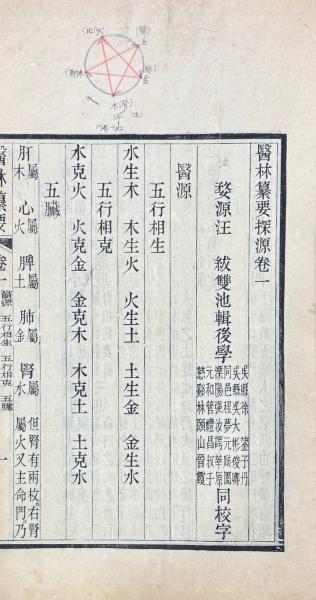 醫林纂要探源卷一
婺源汪 紱雙池輯後學
同校字
醫源
五行相生
水生木 木生火 火生土 土生金 金生水
五行相克
水克火 火克金 金克木 木克土 土克水
五臟
肝屬木 心屬火 脾屬土 肺屬金 腎屬水 但腎有兩枚右腎屬火又主命門乃
醫林纂要 卷一 醫源 五行相生 五行相克 五臟 一